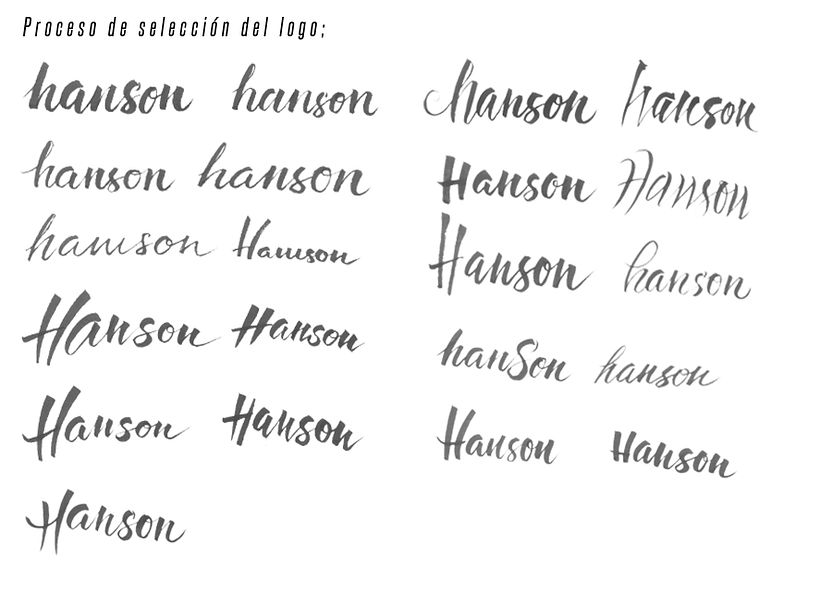 Proceso de selección del logo;
hanson hanson
hanson hanson
hanson Hanson
Hanson Hanson
Hanson Hanson
Hanson
hanson hanson
Hanson Hanson
Hanson hanson
hanSon hanson
Hanson Hanson